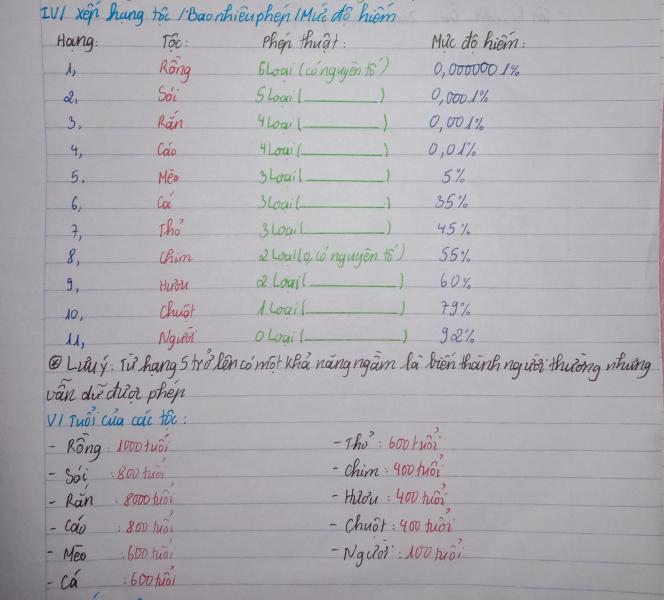 IV/ xếp hạng tộc /Bao nhiêu phép /Mức độ hiếm
Hạng: Tộc: Phép thuật: Mức độ hiếm:
1, Rồng 6 Loại (có nguyên tố) 0,0000001%
2. Sói 5 Loại (________) 0,0001%
3. Rắn 4 Loại (________) 0,001%
4, Cáo 4 Loại (________) 0,01%
5. Mèo 3 Loại (________) 5%
6, Cá 3 Loại (________) 35%
7, Thỏ 3 Loại (________) 45%
8, Chim 2 Loại (0 có nguyên tố) 55%
9, Hươu 2 Loại (________) 60%
10, Chuột 1 Loại (________) 79%
11, Người 0 Loại (________) 92%
Lưu ý: Từ hạng 5 trở lên có một khả năng ngầm là biến thành người thường nhưng
vẫn dữ được phép
V/ Tuổi của các tộc:
- Rồng : 1000 tuổi - Thỏ : 600 tuổi
- Sói : 800 tuổi - Chim : 400 tuổi
- Rắn : 8000 tuổi - Hươu : 400 tuổi
- Cáo : 800 tuổi - Chuột : 400 tuổi
- Mèo : 600 tuổi - Người : 100 tuổi
- Cá : 600 tuổi